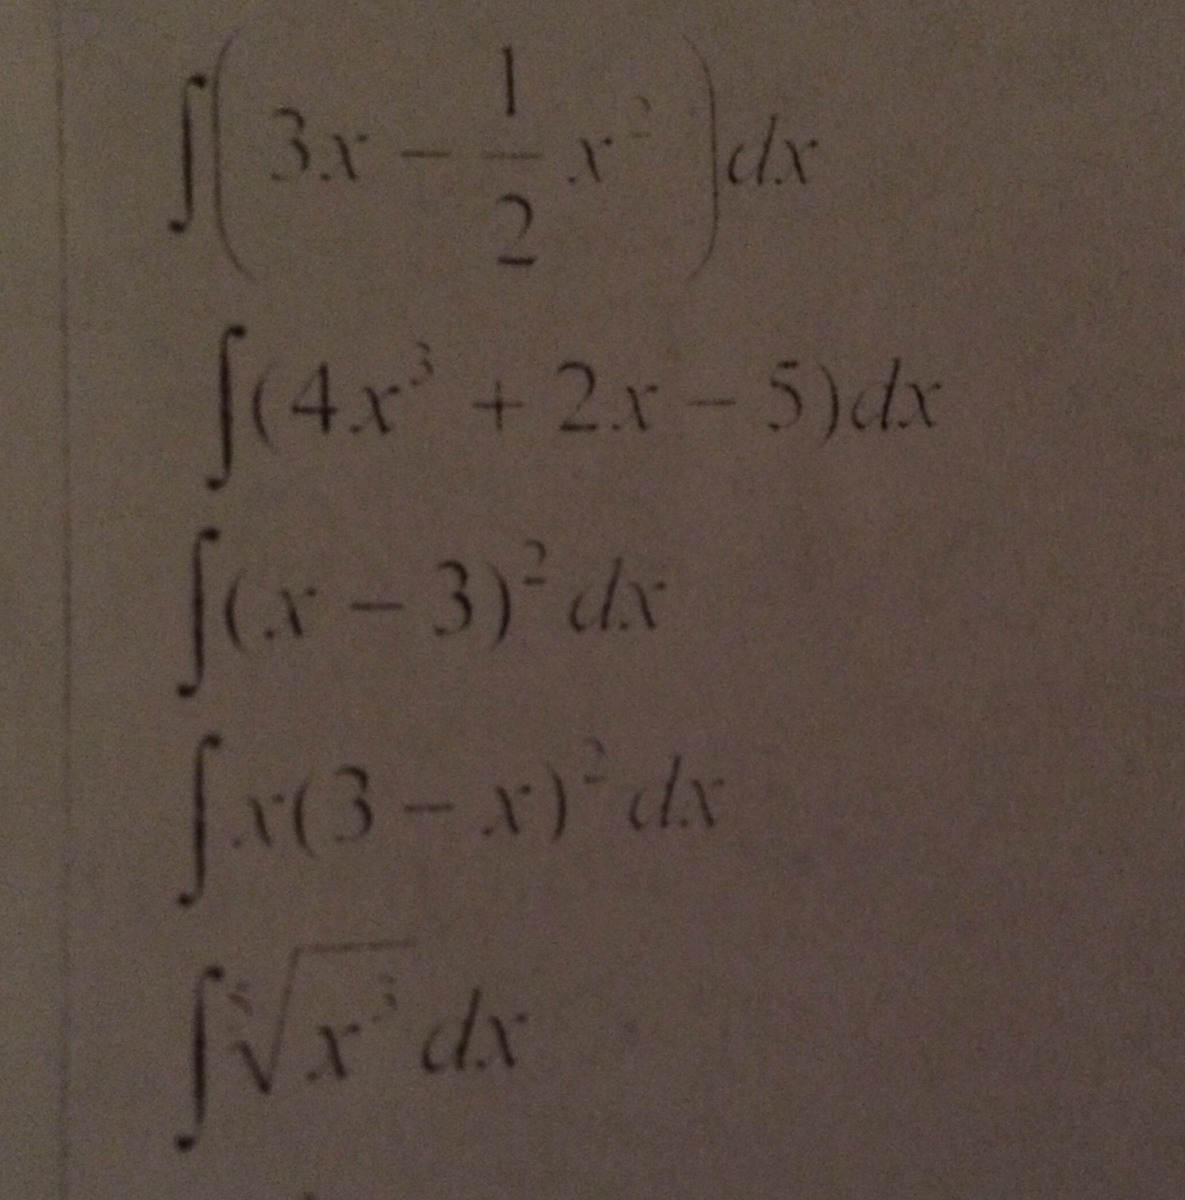 ∫(3x − 1/2 x²)dx
∫(4x³ + 2x − 5)dx
∫(x − 3)² dx
∫x(3 − x)² dx
∫⁵√x³ dx